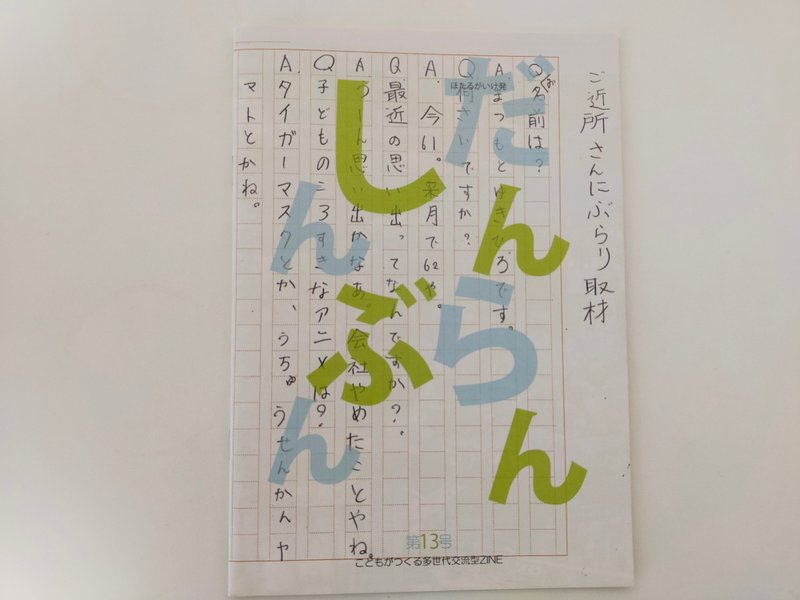 ご近所さんにぶらり取材
Q.お名前は?
A.まつもとゆきひろです。
Q.何さいですか?
A.今61。来月で62や。
Q.最近の思い出ってなんですか?。
A.うーん思い出かなあ。会社やめたことやね。
Q子どものころすきなアニメは?
A.タイガーマスクとか、うちゅうせんかんヤ
マトとかね。
ほたるがいけ発
だんらん
しんぶん
第13号
こどもがつくる多世代交流型ZINE